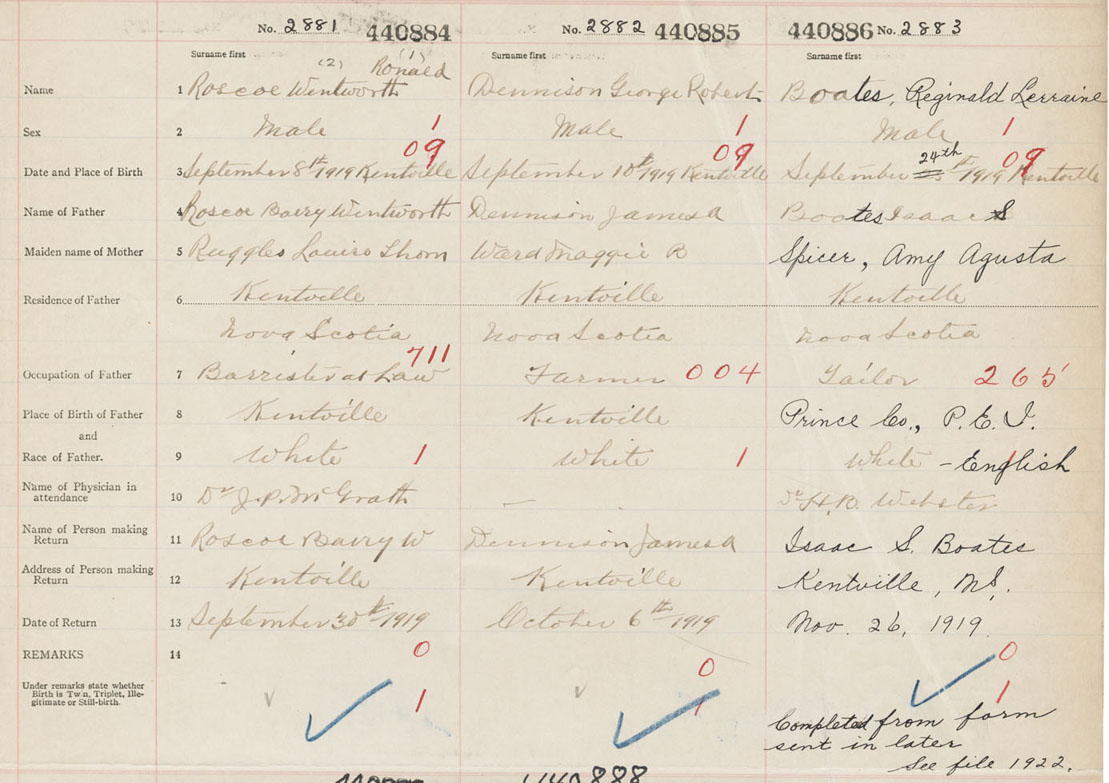 No. 2881 440884 No. 2882 440885 440886 No. 2883
Surname first Surname first Surname first
(2) (1) Ronald
Name 1 Roscoe Wentworth Dennison George Robert Boates, Reginald Lerraine
Sex 2 Male 1 Male 1 Male 1
09 09 24th 09
Date and Place of Birth 3 September 8th 1919 Kentville September 10th 1919 Kentville September th 1919 Kentville
Name of Father 4 Roscoe Barry Wentworth Dennison James A Boates Isaac S
Maiden name of Mother 5 Ruggles Louise Thorn Ward Maggie R Spicer, Amy Agusta
Residence of Father 6 Kentville Kentville Kentville
Nova Scotia Nova Scotia Nova Scotia
711
Occupation of Father 7 Barrister at Law Farmer 004 Tailor 265
Place of Birth of Father 8 Kentville Kentville Prince Co., P.E.I.
and
Race of Father. 9 White 1 White 1 White - English 1
Name of Physician in
attendance 10 Dr J.P. McGrath — Dr H.B. Webster
Name of Person making
Return 11 Roscoe Barry W Dennison James A Isaac S. Boates
Address of Person making
Return 12 Kentville Kentville Kentville, N.S.
Date of Return 13 September 30th 1919 October 6th 1919 Nov. 26, 1919
REMARKS 14 0 0 0
Under remarks state whether
Birth is Twin, Triplet, Ille-
gitimate or Still-birth. 1 1 1
Completed from form
sent in later
See file 1922.